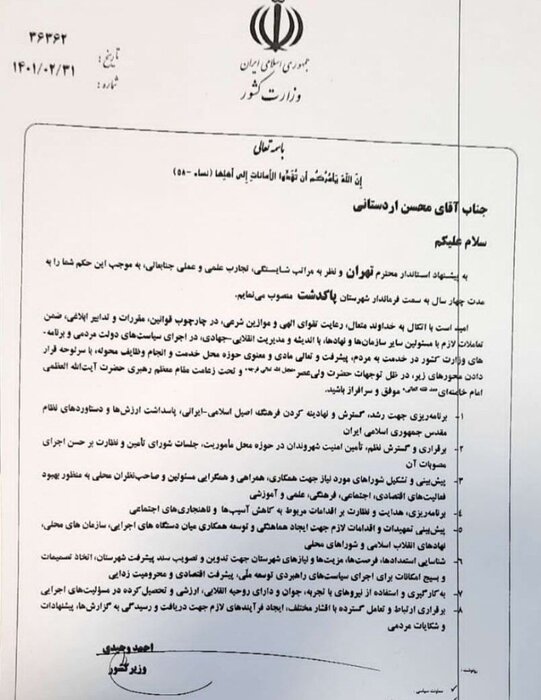 جمهوری اسلامی ایران
وزارت کشور
۳۶۳۶۲
تاریخ :
۱۴۰۱/۰۲/۳۱
شماره :
باسمه تعالی
إنَّ اللّهَ یَأمُرُکُم أن تُؤَدُّوا الأمَاناتِ إلی أهلِها (نساء -۵۸)
جناب آقای محسن اردستانی
سلام علیکم
به پیشنهاد استاندار محترم تهران و نظر به مراتب شایستگی، تجارب علمی و عملی جنابعالی، به موجب این حکم شما را به
مدت چهار سال به سمت فرماندار شهرستان پاکدشت منصوب می‌نمایم.
امید است با اتکال به خداوند متعال، رعایت تقوای الهی و موازین شرعی، در چارچوب قوانین، مقررات و تدابیر ابلاغی، ضمن
تعاملات لازم با مسئولین سایر سازمان‌ها و نهادها، با اندیشه و مدیریت انقلابی-جهادی، در اجرای سیاست‌های دولت مردمی و برنامه-
های وزارت کشور در خدمت به مردم، پیشرفت و تعالی مادی و معنوی حوزه محل خدمت و انجام وظایف محوله، با سرلوحه قرار
دادن محورهای زیر، در ظل توجهات حضرت ولی‌عصر(عجل الله تعالی فرجه) و تحت زعامت مقام معظم رهبری حضرت آیت‌الله العظمی
امام خامنه‌ای(مد ظله العالی) موفق و سرافراز باشید.
۱- برنامه‌ریزی جهت رشد، گسترش و نهادینه کردن فرهنگ اصیل اسلامی-ایرانی، پاسداشت ارزش‌ها و دستاوردهای نظام
مقدس جمهوری اسلامی ایران
۲- برقراری و گسترش نظم، تأمین امنیت شهروندان در حوزه محل مأموریت، جلسات شورای تأمین و نظارت بر حسن اجرای
مصوبات آن
۳- پیش‌بینی و تشکیل شوراهای مورد نیاز جهت همکاری، همراهی و همگرایی مسئولین و صاحب‌نظران محلی به منظور بهبود
فعالیت‌های اقتصادی، اجتماعی، فرهنگی، علمی و آموزشی
۴- برنامه‌ریزی، هدایت و نظارت بر اقدامات مربوط به کاهش آسیب‌ها و ناهنجاری‌های اجتماعی
۵- پیش‌بینی تمهیدات و اقدامات لازم جهت ایجاد هماهنگی و توسعه همکاری میان دستگاه های اجرایی، سازمان های محلی،
نهادهای انقلاب اسلامی و شوراهای محلی
۶- شناسایی استعدادها، فرصت‌ها، مزیت‌ها و نیازهای شهرستان جهت تدوین و تصویب سند پیشرفت شهرستان، اتخاذ تصمیمات
و بسیج امکانات برای اجرای سیاست‌های راهبردی توسعه ملّی، پیشرفت اقتصادی و محرومیت زدایی
۷- به کارگیری و استفاده از نیروهای با تجربه، جوان و دارای روحیه انقلابی، ارزشی و تحصیل کرده در مسؤلیت‌های اجرایی
۸- برقراری ارتباط و تعامل گسترده با اقشار مختلف، ایجاد فرآیندهای لازم جهت دریافت و رسیدگی به گزارش‌ها، پیشنهادات
و شکایات مردمی
احمد وحیدی
وزیر کشور
رونوشت :
معاونت سیاسی